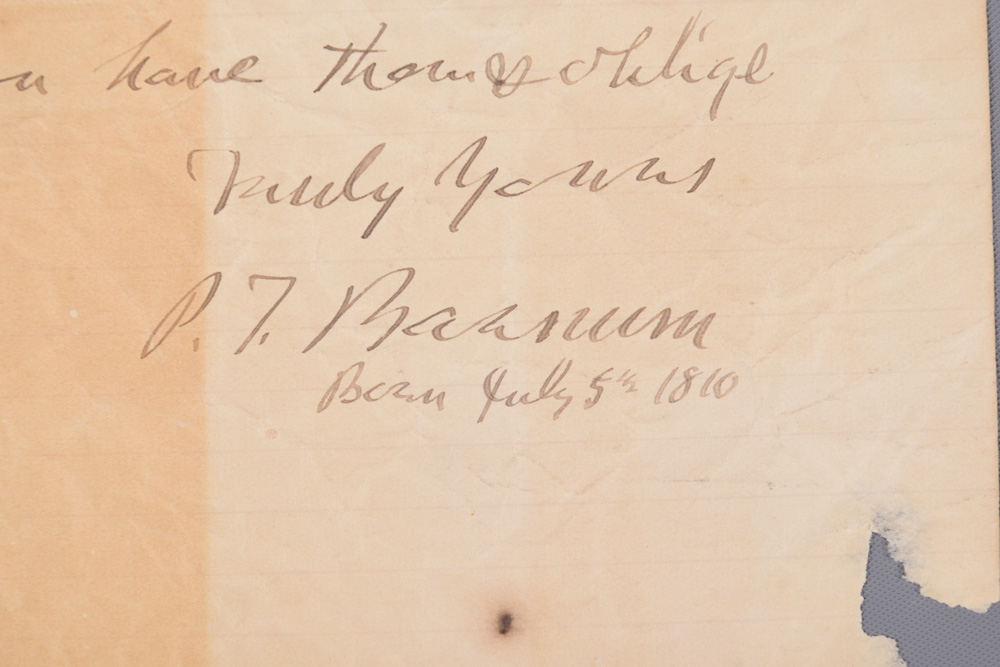 have them & oblige
Truly Yours
P. T. Barnum
Born July 5th 1810